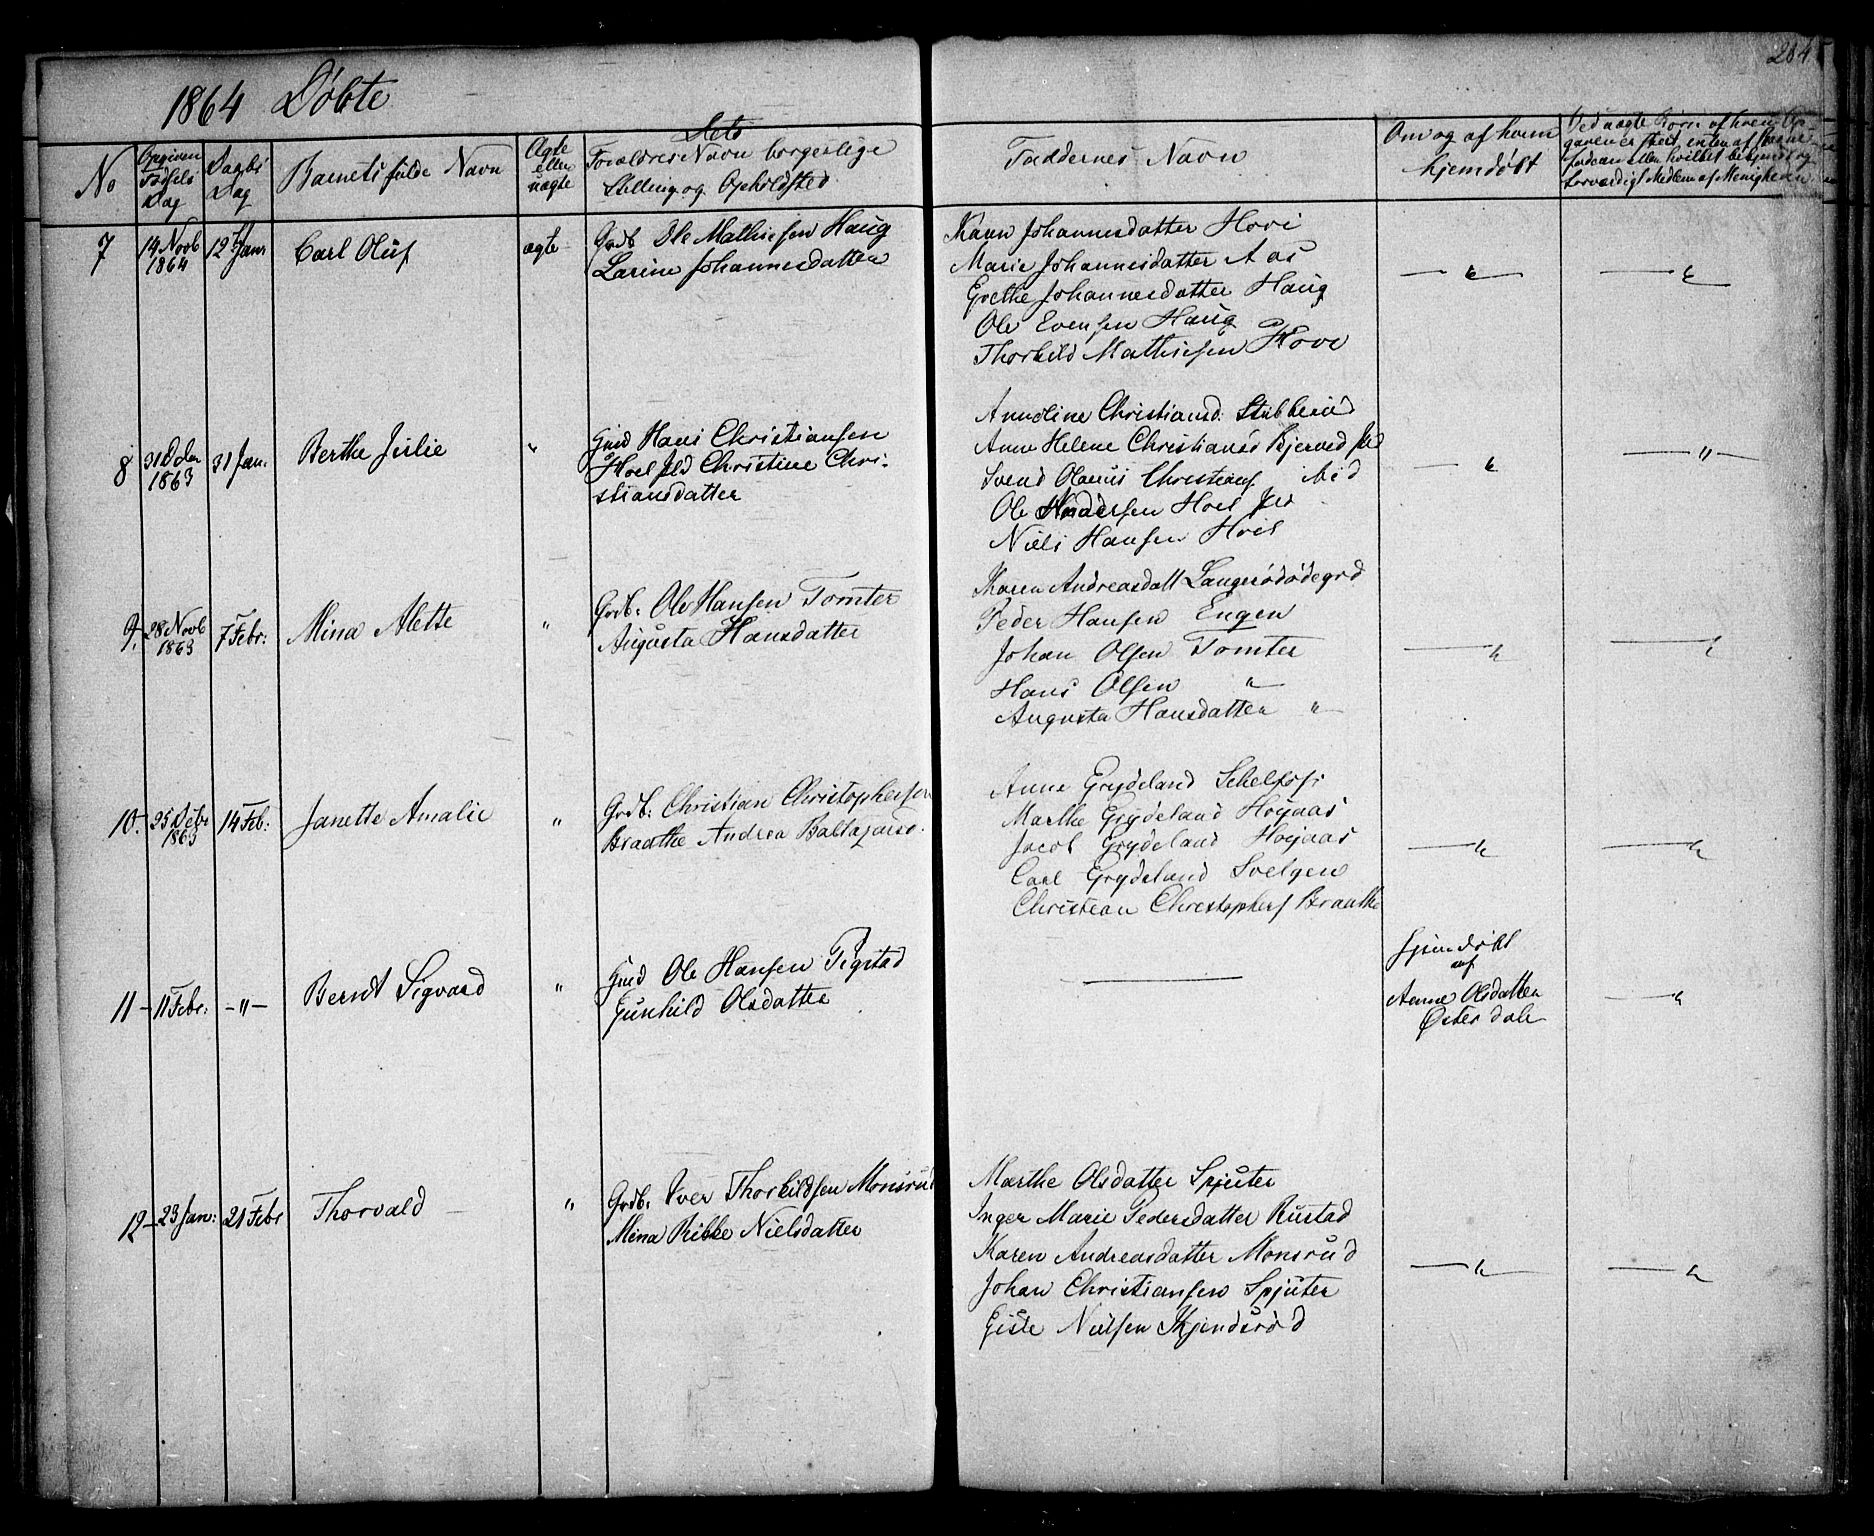 284
1864 Døbte
No
Opgiven Fødsels Dag
Daabs Dag
Barnets fulde Navn
Ægte eller uægte
Forældres Navn borgerlige
Stilling og Opholdsted
Faddernes Navn
Om og af hvem
hjemdøbt
Ved uægte Børn af hvem Op
7 14 Novb 1864 12 Janr Carl Oluf ægte
Grdb Ole Mathiesen Haug
Larine Johannesdatter
Karen Johannesdatter Hovi
Marie Johannesdatter Aas
Grethe Johannesdatter Haug
Ole Evensen Haug
Thorkild Mathiesen Hove
8 31 Dcbr 1863 31 Jan. Berthe Julie "
Hans Christiansen
Hoel Christine Chri-
stiansdatter
Christiansd: Stubberud
Anne Helene Christiansd Bjerned
Svend Christians
Ole Hoel
Niels Hansen Hoel
9. 28 Novb 1863 7 Febr: Mina Alette "
Grdb. Ole Hansen Tomter
Augusta Hansdatter
Karen Andreasdatt
Peder Hansen Engen
Johan Olsen Tomter
Hans Olsen "
Augusta Hansdatter "
10. 25 Debr 1863 14 Feb: Janette Amalie "
Grdb: Christian Christophersen
Braathe Andrea Baltazarsd.
Anne Grydeland
Marthe Grydeland Høyaas
Jacob Grydeland Høyaas
Carl Grydeland Svelgen
Christian Christophers Braathe
11 – 11 Febr: –"– Bernt Sigvard "
Ole Hansen Tigstad
Gunhild Olsdatter
hjemdøbt
af
Anne Olsdatter
Østerdale
12 – 23 Jan: 21 Febr Thorvald "
Grdb. Iver Thorkildsen Monsrud
Mina Rikke Nielsdatter
Marthe Olsdatter Spjuter
Inger Marie Pedersdatter Rustad
Karen Andreasdatter Monsrud
Johan Christiansen Spjuter
Gisle Nielsen Kjendsrød